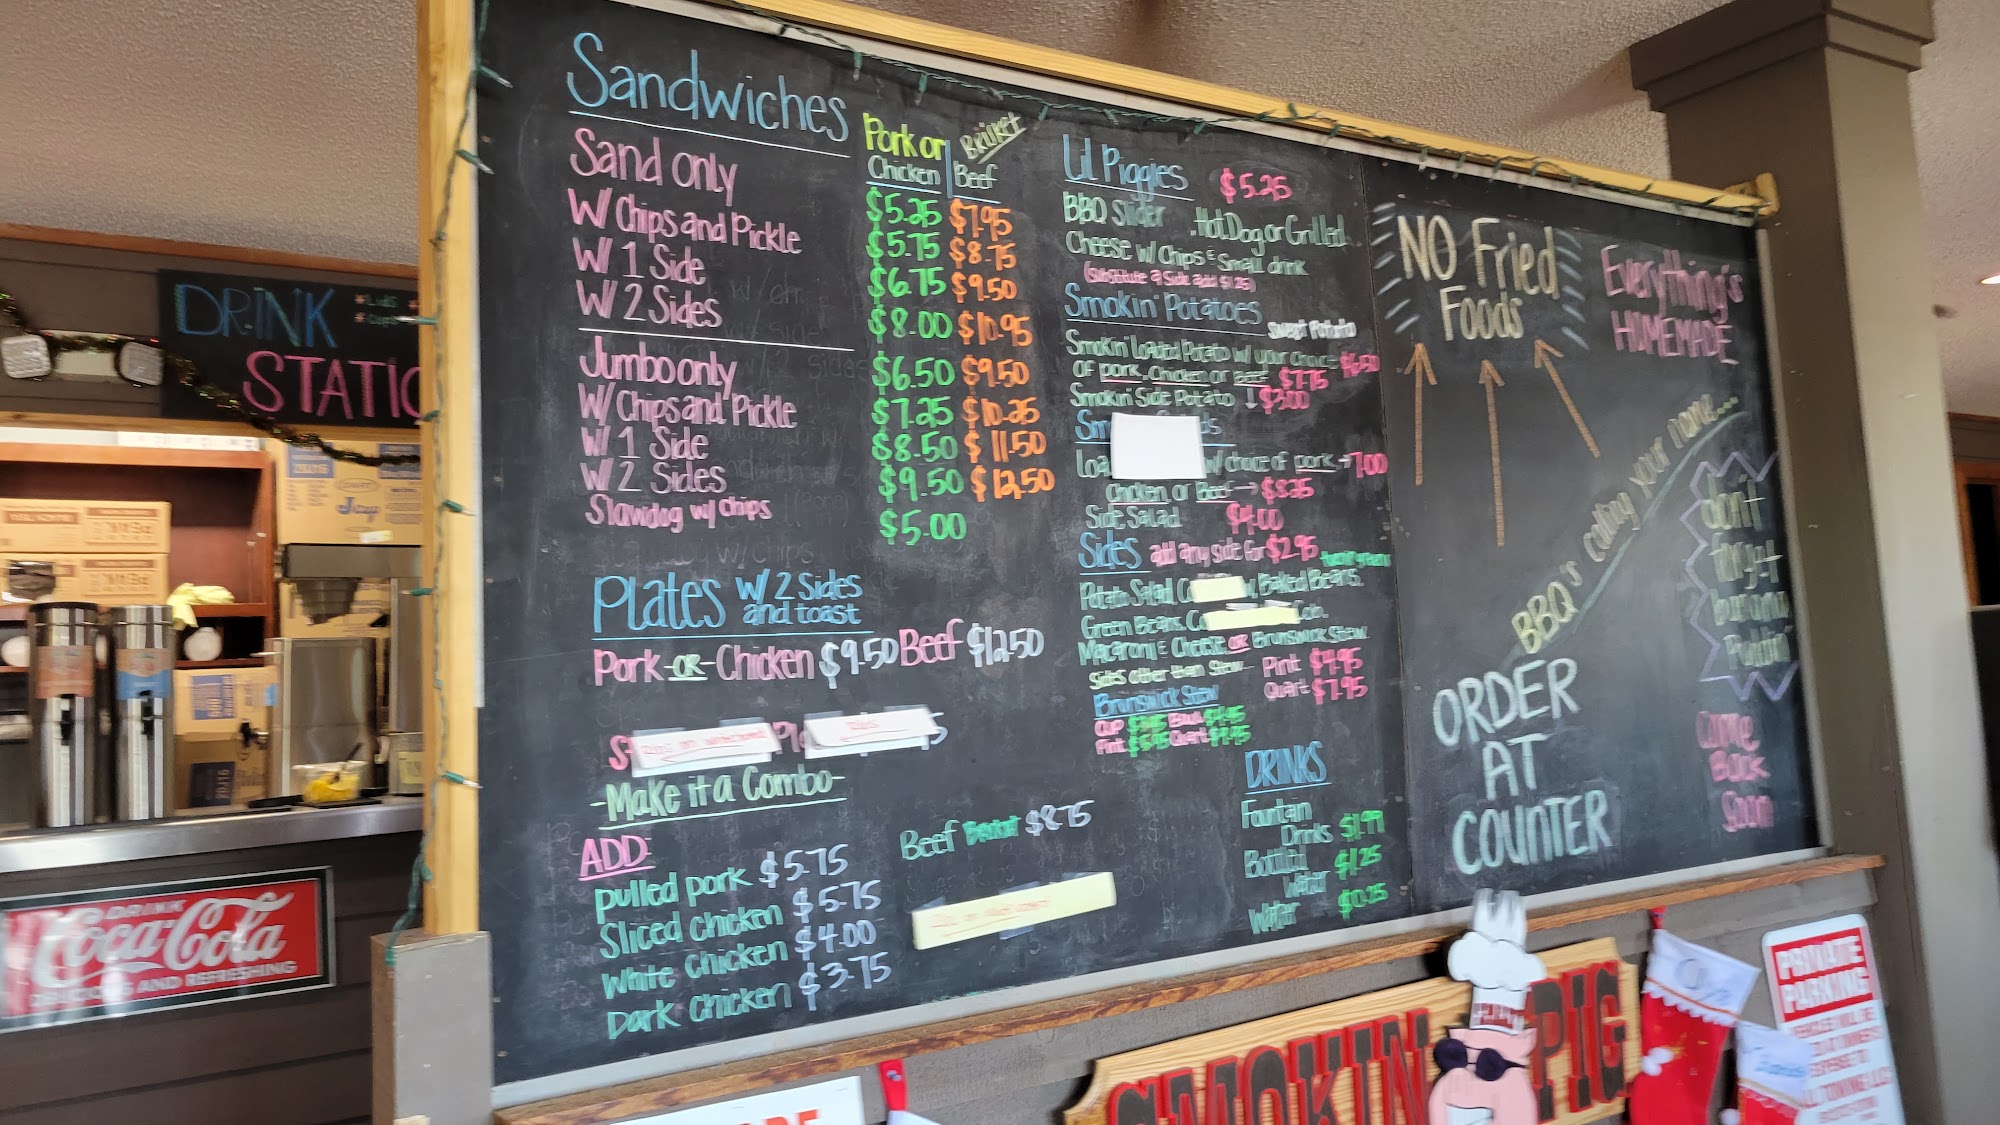 Sandwiches
Pork or Chicken | Brisket Beef
Sand only $5.25 $7.95
W/ Chips and Pickle $5.75 $8.75
W/ 1 Side $6.75 $9.50
W/ 2 Sides $8.00 $10.95
Jumbo only $6.50 $9.50
W/ Chips and Pickle $7.25 $10.25
W/ 1 Side $8.50 $11.50
W/ 2 Sides $9.50 $12.50
Slawdog w/ chips $5.00
Plates w/ 2 Sides
and toast
Pork -or- Chicken $9.50 Beef $12.50
-Make it a Combo-
ADD:
Pulled pork $5.75
Sliced Chicken $5.75
White Chicken $4.00
Dark Chicken $3.75
Beef Brisket $8.75
Lil Piggies $5.25
BBQ Slider . Hot Dog or Grilled
Cheese w/ Chips & Small drink
(substitute a Side add $1.25)
Smokin' Potatoes
Sweet Potato
Smokin' Loaded Potato w/ your choice $6.50
of pork, Chicken or Beef $7.75
Smokin Side Potato ↓ $3.00
w/ choice of pork → 7.00
Chicken or Beef → $8.25
Side Salad $4.00
Sides add any side for $2.95
Potato Salad, Baked Beans,
Green Beans,
Macaroni & Cheese or Brunswick Stew
Sides other than Stew... Pint $4.95
Quart $7.95
Brunswick Stew
DRINKS
Fountain
Drinks $1.99
Bottled
Water $1.25
Water $0.25
NO Fried
Foods
Everything's
HOMEMADE
BBQ's calling your name...
don't
forget
banana
Puddin'
ORDER
AT
COUNTER
Come
Back
Soon
DRINK
STATIO
DRINK
Coca-Cola
DELICIOUS AND REFRESHING
SMOKIN PIG
PRIVATE
PARKING